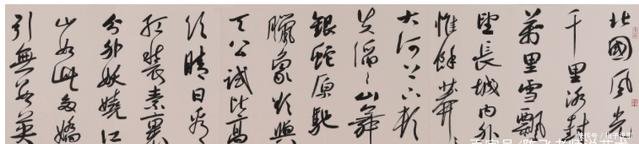 北國風光
千里冰封
萬里雪飄
望長城内外
惟餘莽
大河上下頓
失滔〻山舞
銀蛇原馳
臘象欲與
天公試比高
須晴日看
紅裝素裹
分外妖嬈江
山如此多嬌
引無數英